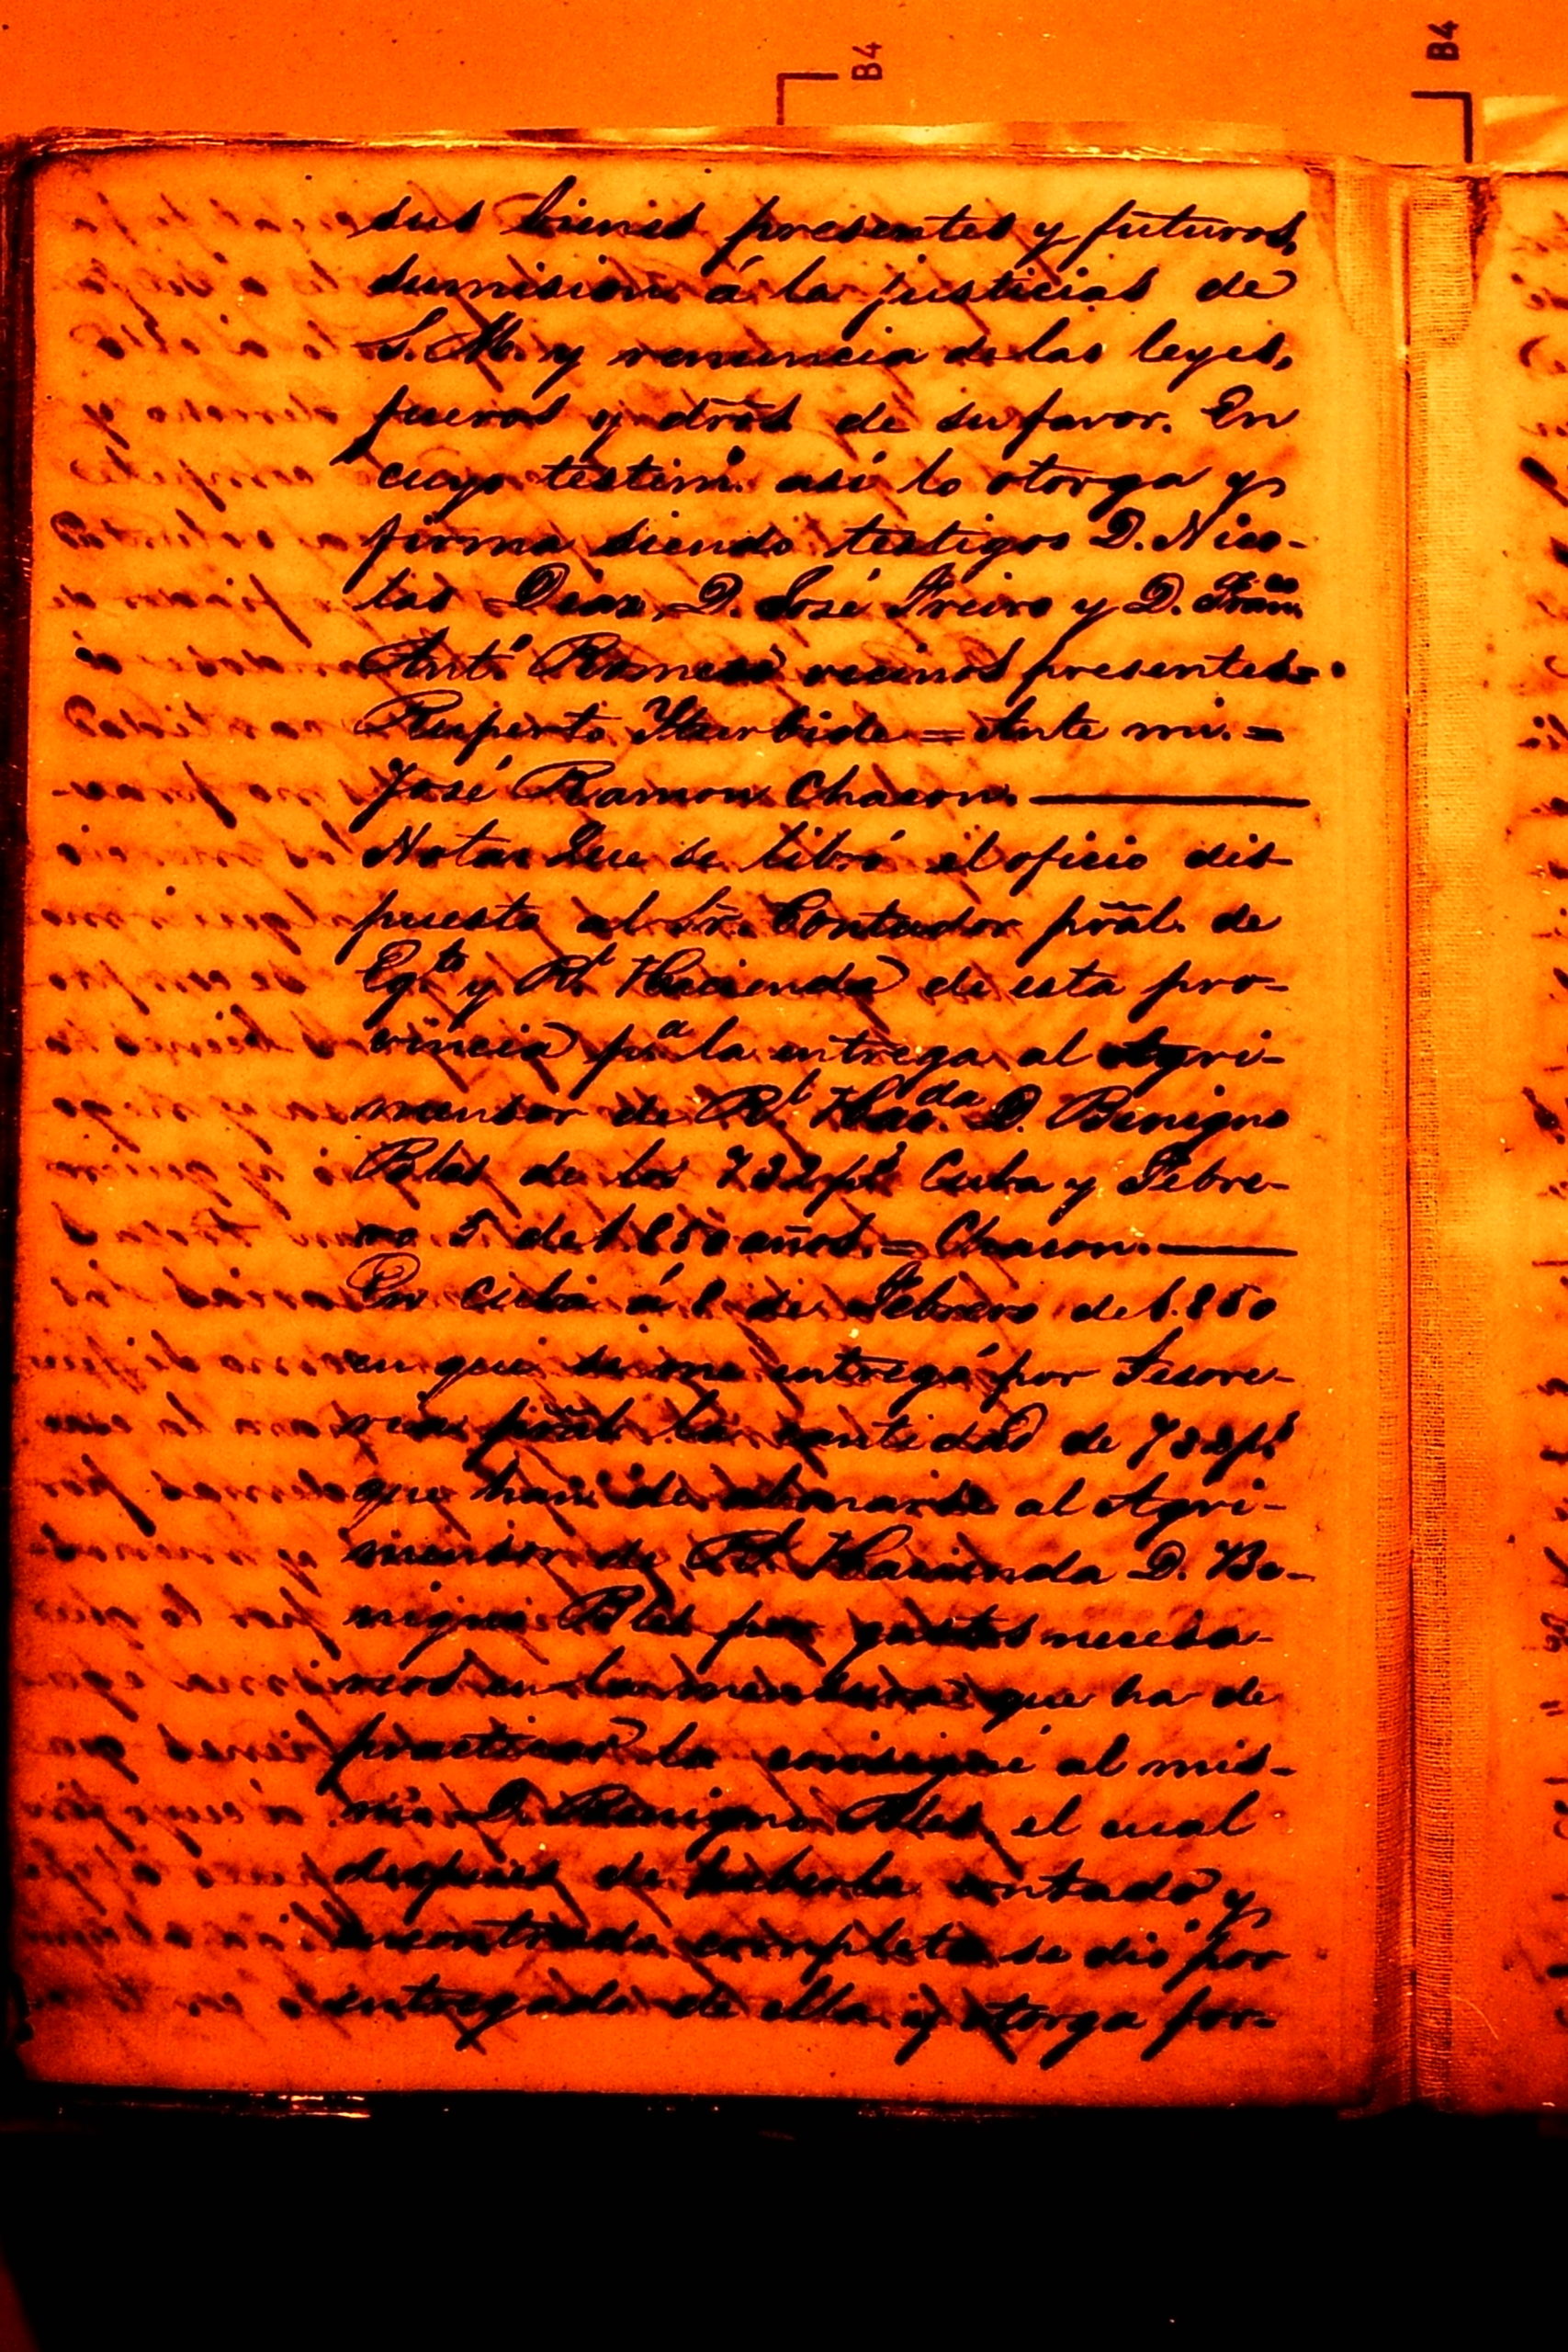 B4
B4
sus bienes presentes y futuros,
sumision á la justicias de
S. M. y renuncia de las leyes,
fueros y dr̃os de su favor. En
cuyo testimº así lo otorga y
firma siendo testigos D. Nico-
las Dias, D. José Freire y D. Franco
Antº Ramos vecinos presentes.
Ruperto Yturbide = Ante mi. =
José Ramon Chacon.
Nota: Que se libró el oficio dis-
puesto al Sr. Contador pr̃al. de
Egto y Rl Hacienda de esta pro-
vincia pa la entrega al Agri-
mensor de Rl Hacda D. Benigno
Bles de los 732 ps Cuba y Febre-
ro 5 de 1.850 años. = Chacon.
En Cuba á 8 de Febrero de 1.850
en que se me entregó por Tesore-
ria pr̃al. la cantidad de 732 ps
que han de abonarse al Agri-
mensor de Rl Hacienda D. Be-
nigno Bles por gastos necesa-
rios en la mensura que ha de
practicar la consigné al mis-
mo D. Benigno Bles, el cual
despues de haberla contado y
encontrado completa se dió por
entregado de ella y otorga for-